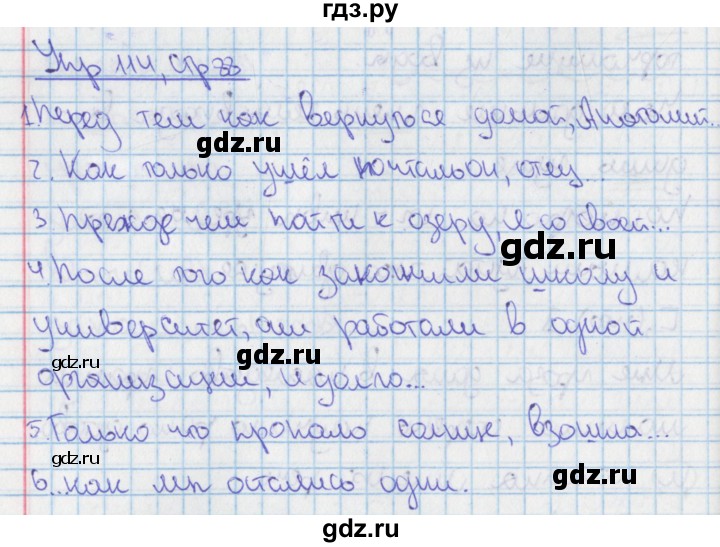 гдз.ру
Упр 114, стр 33
1. Перед тем как вернуться домой, Анатолий..
2. Как только ушёл почтальон, отец...
3. Прежде чем пойти к озеру, я со своей...
4. После того как закончили школу и
университет, они работали в одной
организации, и долго...
5. Только что пропало солнце, взошла...
6. ..как мы остались одни.
gdz.ru
gdz.ru
gdz.ru
gdz.ru
gdz.ru
gdz.ru
gdz.ru
gdz.ru